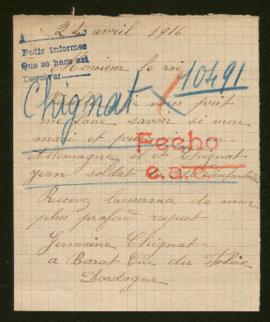 24 avril 1916
A
Pedir informes
Que se hace así
Devolver
Monsieur le roi
10491
Chignat
vous prie
me faire savoir si mon
mari et prisonnier en
Allemagne il et Chignat
jean soldat
Fecho
e.a.
Recevez lassurance de mon
plus profond respect
Germaine Chignat
a Barat
Dordogne